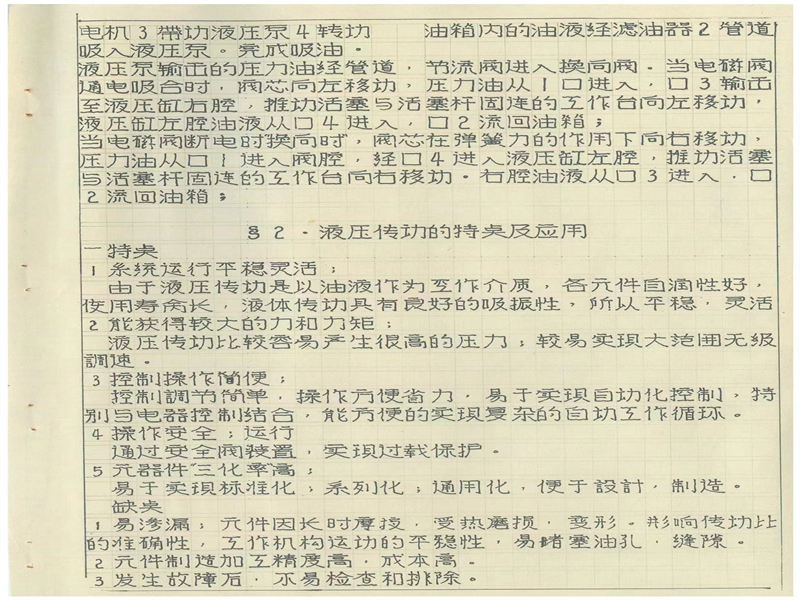 电机3带动液压泵4转动 油箱内的油液经滤油器2管道
吸入液压泵。完成吸油。
液压泵输出的压力油经管道，节流阀进入换向阀。当电磁阀
通电吸合时，阀芯向左移动，压力油从口1口进入，口3输出
至液压缸右腔，推动活塞与活塞杆固连的工作台向左移动，
液压缸左腔油液从口4进入，口2流回油箱；
当电磁阀断电时换向时，阀芯在弹簧力的作用下向右移动，
压力油从口1进入阀腔，经口4进入液压缸左腔，推动活塞
与活塞杆固连的工作台向右移动。右腔油液从口3进入，口
2流回油箱；
§2·液压传动的特点及应用
一特点
1系统运行平稳灵活；
由于液压传动是以油液作为工作介质，各元件自润性好，
使用寿命长，液体传动具有良好的吸振性，所以平稳，灵活
2能获得较大的力和力矩；
液压传动比较容易产生很高的压力；较易实现大范围无级
調速。
3控制操作简便；
控制調节简单，操作方便省力，易于实现自动化控制，特
别与电器控制结合，能方便的实现复杂的自动工作循环。
4操作安全；运行
通过安全阀装置，实现过载保护。
5元器件三化率高；
易于实现标准化；系列化；通用化，便于設計，制造。
缺点
1易渗漏；元件因长时摩技，受热磨损，变形。影响传动比
的准确性，工作机构运动的平稳性，易堵塞油孔，缝隙。
2元件制造加工精度高，成本高。
3发生故障后，不易检查和排除。